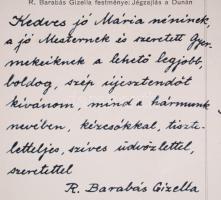 R. Barabás Gizella festménye: Jégzajlás a Dunán
Kedves jó Mária néninek,
a jó Mesternek és szeretett Gyer-
mekeiknek a lehető legjobb,
boldog, szép újesztendőt
kívánom, mind a hármunk
nevében, kézcsókkal, tiszte-
letteljes, szíves üdvözlettel,
szeretettel
R. Barabás Gizella